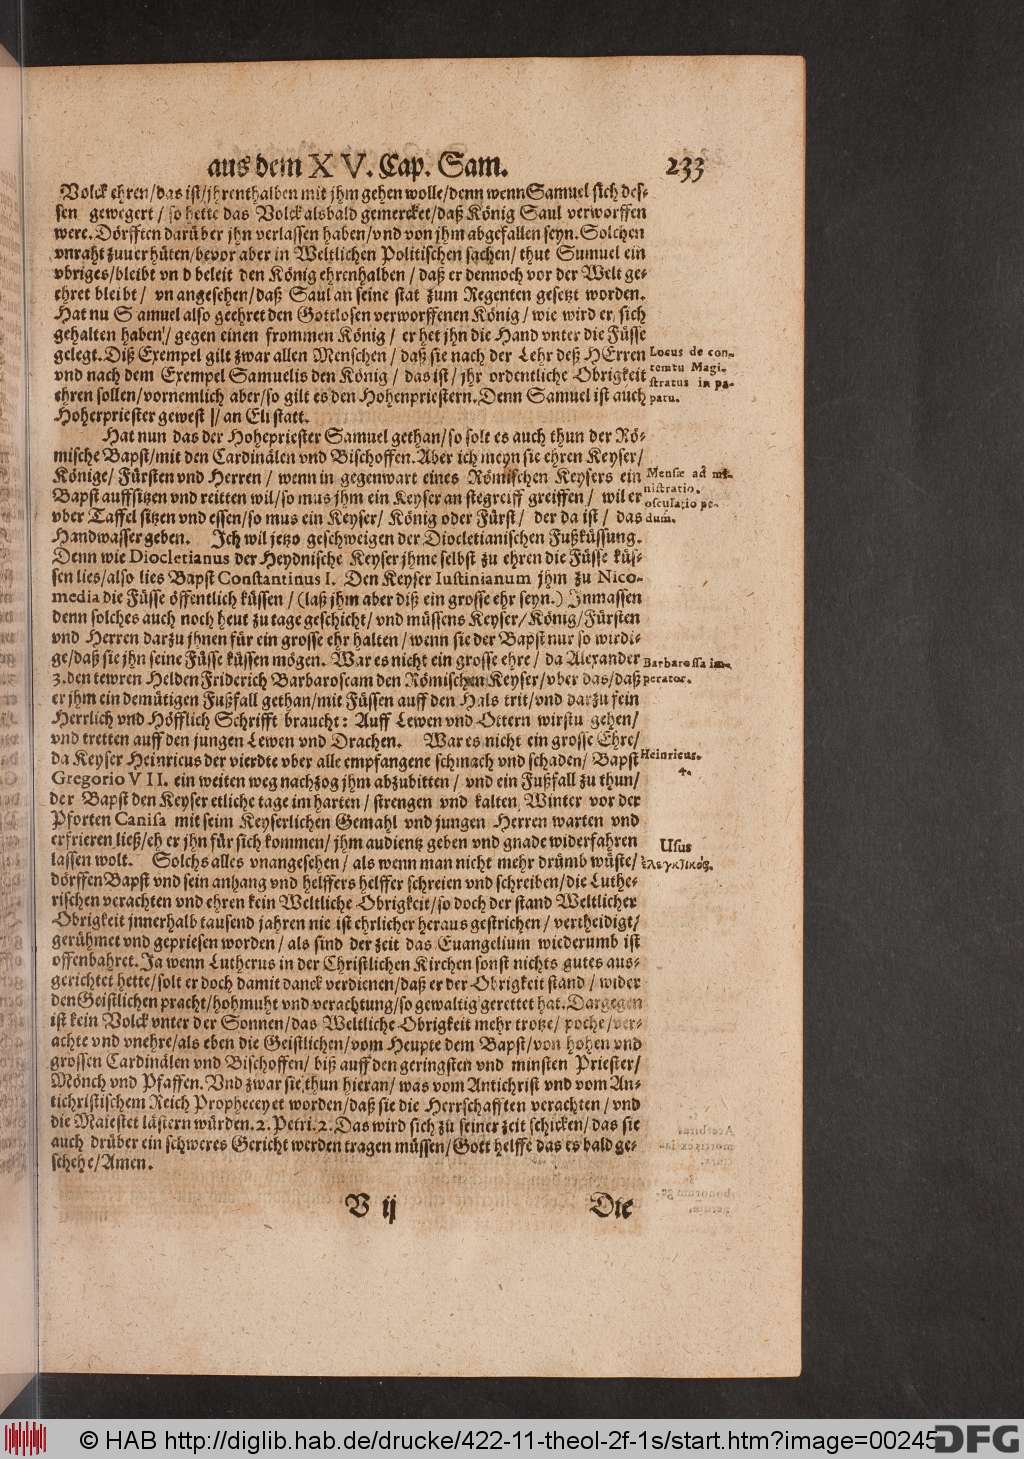 aus dem XV. Cap. Sam. 233
Volck ehren/das ist/jhrenthalben mit jhm gehen wolle/denn wenn Samuel sich des-
sen gewegert / so hette das Volck alsbald gemercket/daß König Saul verworffen
were. Dörfften darüber jhn verlassen haben/vnd von jhm abgefallen seyn. Solchen
vnraht zuuerhüten/bevor aber in Weltlichen Politischen sachen/ thut Sumuel ein
vbriges/bleibt vnd beleit den König ehrenhalben / daß er dennoch vor der Welt ge-
ehret bleibt / vnangesehen/daß Saul an seine stat zum Regenten gesetzt worden.
Hat nu Samuel also geehret den Gottlosen verworffenen König / wie wird er sich
gehalten haben / gegen einen frommen König / er het jhn die Hand vnter die Füsse
gelegt. Diß Exempel gilt zwar allen Menschen / daß sie nach der Lehr deß HErren
vnd nach dem Exempel Samuelis den König / das ist / jhr ordentliche Obrigkeit
ehren sollen/vornemlich aber/so gilt es den Hohenpriestern. Denn Samuel ist auch
Hoherpriester gewest / an Eli statt.
Locus de con-
temtu Magi-
stratus in pa-
patu.
Hat nun das der Hohepriester Samuel gethan/so solt es auch thun der Rö-
mische Bapst/mit den Cardinälen vnd Bischoffen. Aber ich meyn sie ehren Keyser/
Könige/ Fürsten vnd Herren / wenn in gegenwart eines Römischen Keysers ein
Bapst auffsitzen vnd reitten wil/so mus jhm ein Keyser an stegreiff greiffen / wil er
vber Taffel sitzen vnd essen/so mus ein Keyser/ König oder Fürst / der da ist / das
Handwasser geben. Ich wil jetzo geschweigen der Diocletianischen Fußküssung.
Denn wie Diocletianus der Heydnische Keyser jhme selbst zu ehren die Füsse küs-
sen lies/also lies Bapst Constantinus I. Den Keyser Iustinianum jhm zu Nico-
media die Füsse öffentlich küssen / (laß jhm aber diß ein grosse ehr seyn.) Inmassen
denn solches auch noch heut zu tage geschicht/ vnd müssens Keyser/ König/Fürsten
vnd Herren darzu jhnen für ein grosse ehr halten / wenn sie der Bapst nur so wirdi-
ge/daß sie jhn seine Füsse küssen mögen. War es nicht ein grosse ehre / da Alexander
3. den tewren Helden Friderich Barbarossam den Römischen Keyser/vber das/daß
er jhm ein demütigen Fußfall gethan/mit Füssen auff den Hals trit/vnd darzu fein
Herrlich vnd Höfflich Schrifft braucht: Auff Lewen vnd Ottern wirstu gehen/
vnd tretten auff den jungen Lewen vnd Drachen. War es nicht ein grosse Ehre/
da Keyser Heinricus der vierdte vber alle empfangene schmach vnd schaden/ Bapst
Gregorio VII. ein weiten weg nachzog jhm abzubitten / vnd ein Fußfall zu thun/
der Bapst den Keyser etliche tage im harten / strengen vnd kalten Winter vor der
Pforten Canisa mit seim Keyserlichen Gemahl vnd jungen Herren warten vnd
erfrieren ließ/eh er jhn für sich kommen / jhm audientz geben vnd gnade widerfahren
lassen wolt. Solchs alles vnangesehen / als wenn man nicht mehr drümb wüste/
dörffen Bapst vnd sein anhang vnd helffers helffer schreien vnd schreiben/die Luthe-
rischen verachten vnd ehren kein Weltliche Obrigkeit/so doch der stand Weltlicher
Obrigkeit jnnerhalb tausend jahren nie ist ehrlicher heraus gestrichen / vertheidigt/
gerühmet vnd gepriesen worden / als sind der zeit das Euangelium wiederumb ist
offenbahret. Ja wenn Lutherus in der Christlichen Kirchen sonst nichts gutes aus-
gerichtet hette/solt er doch damit danck verdienen/daß er der Obrigkeit stand / wider
den Geistlichen pracht/hohmuht vnd verachtung/so gewaltig gerettet hat. Dargegen
ist kein Volck vnter der Sonnen/das Weltliche Obrigkeit mehr trotze/ poche/ver-
achte vnd vnehre/als eben die Geistlichen/vom Heupte dem Bapst/von hohen vnd
grossen Cardinälen vnd Bischoffen/ biß auff den geringsten vnd minsten Priester/
Mönch vnd Pfaffen. Vnd zwar sie thun hieran/ was vom Antichrist vnd vom An-
tichristischem Reich Propheceyet worden/daß sie die Herrschafften verachten / vnd
die Maiestet lästern würden. 2. Petri. 2. Das wird sich zu seiner zeit schicken/ das sie
auch drüber ein schweres Gericht werden tragen müssen/Gott helffe das es bald ge-
schehe/Amen.
Mensæ ad mi-
nistratio.
osculatio pe-
dum.
Barbarossa im-
perator.
Heinricus.
4.
Usus
ἐλεγκτικός.
V ij Die
© HAB http://diglib.hab.de/drucke/422-11-theol-2f-1s/start.htm?image=00245
DFG